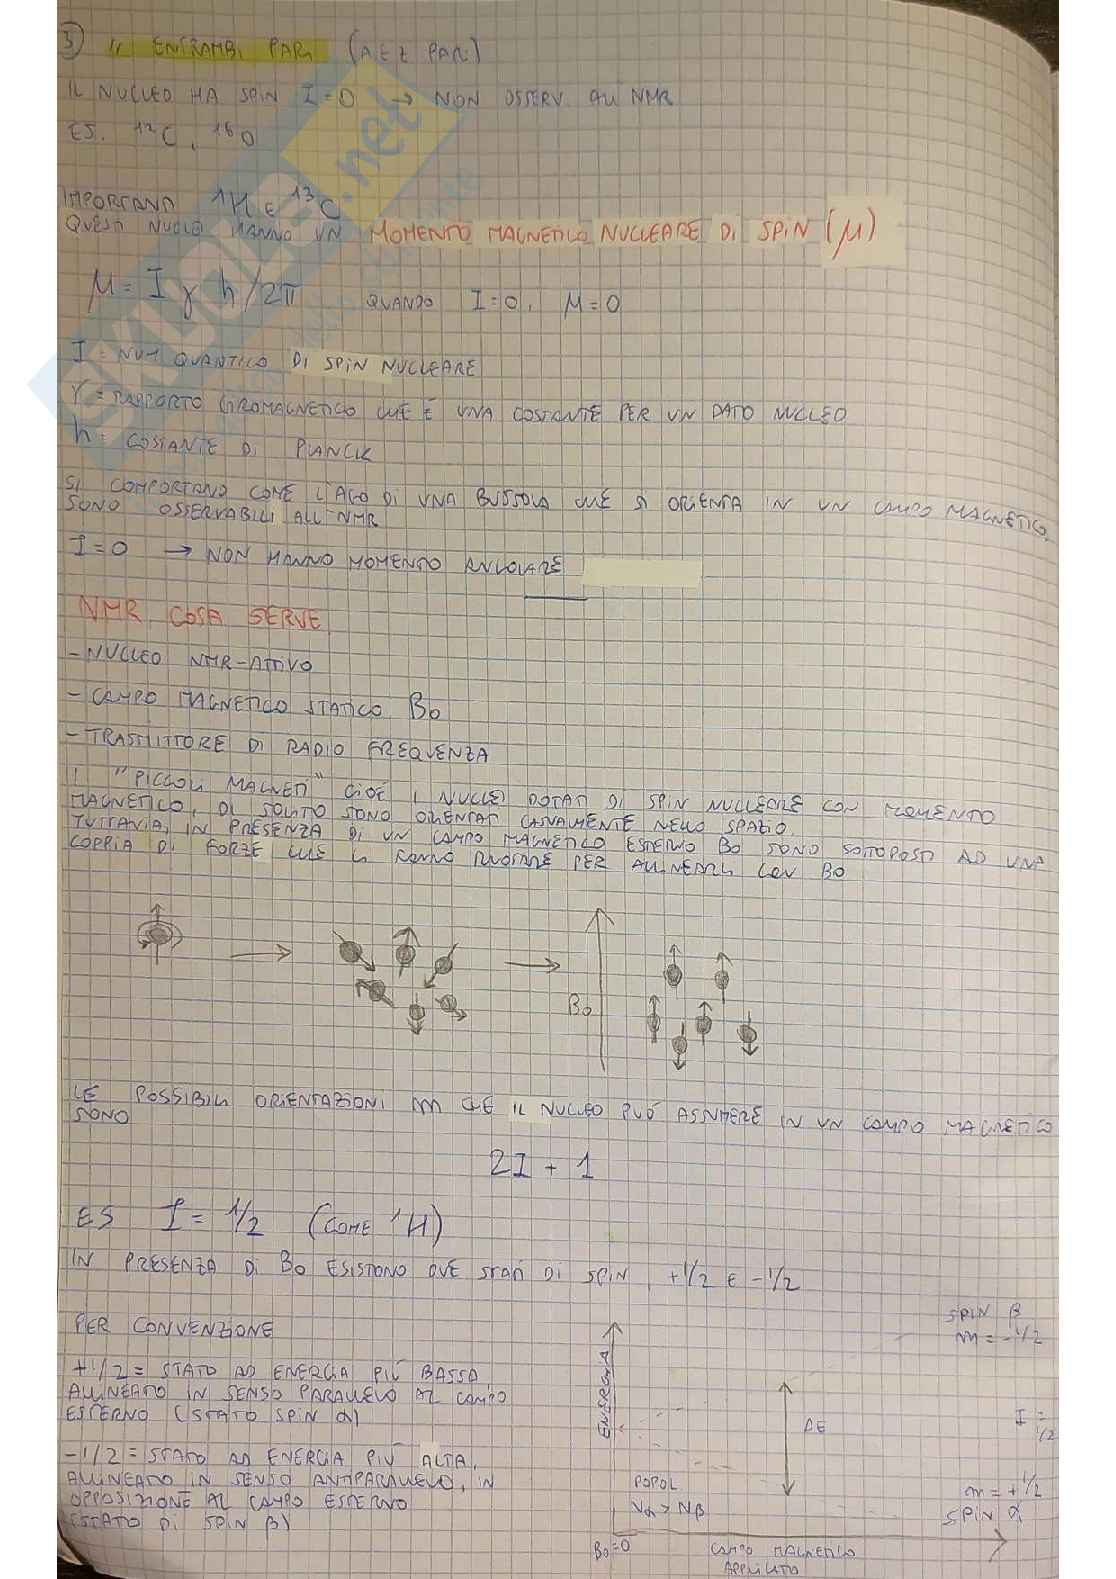 3) " ENTRAMBI PARI (A E Z PARI)
IL NUCLEO HA SPIN I=0 → NON OSSERV. ALL NMR
ES. ¹²C, ¹⁶O
IMPORTANTI ¹H E ¹³C
QUESTI NUCLEI HANNO UN MOMENTO MAGNETICO NUCLEARE DI SPIN (μ)
μ = I γ h/2π QUANDO I=0, μ=0
I = NUM QUANTICO DI SPIN NUCLEARE
γ = RAPPORTO GIROMAGNETICO CHE È UNA COSTANTE PER UN DATO NUCLEO
h = COSTANTE DI PLANCK
SI COMPORTANO COME L'AGO DI UNA BUSSOLA CHE SI ORIENTA IN UN CAMPO MAGNETICO.
SONO OSSERVABILI ALL'NMR
I=0 → NON HANNO MOMENTO ANGOLARE
NMR COSA SERVE
- NUCLEO NMR-ATTIVO
- CAMPO MAGNETICO STATICO B₀
- TRASMITTORE DI RADIO FREQUENZA
I "PICCOLI MAGNETI" CIOÈ I NUCLEI DOTATI DI SPIN NUCLEARE CON MOMENTO
MAGNETICO, DI SOLITO SONO ORIENTATI CASUALMENTE NELLO SPAZIO.
TUTTAVIA, IN PRESENZA DI UN CAMPO MAGNETICO ESTERNO B₀ SONO SOTTOPOSTI AD UNA
COPPIA DI FORZE CHE LI FANNO RUOTARE PER ALLINEARLI CON B₀
B₀
LE POSSIBILI ORIENTAZIONI m CHE IL NUCLEO PUÒ ASSUMERE IN UN CAMPO MAGNETICO
SONO
2I + 1
ES I = 1/2 (COME ¹H)
IN PRESENZA DI B₀ ESISTONO DUE STATI DI SPIN, +1/2 E -1/2
PER CONVENZIONE
+1/2 = STATO AD ENERGIA PIÙ BASSA
ALLINEATO IN SENSO PARALLELO AL CAMPO
ESTERNO (STATO SPIN α)
-1/2 = STATO AD ENERGIA PIÙ ALTA,
ALLINEATO IN SENSO ANTIPARALLELO, IN
OPPOSIZIONE AL CAMPO ESTERNO
(STATO DI SPIN β)
SPIN β
m = -1/2
ENERGIA
ΔE
I = 1/2
POPOL
Nα > Nβ
m = +1/2
SPIN α
B₀=0
CAMPO MAGNETICO
APPLICATO
SKUOLA.net